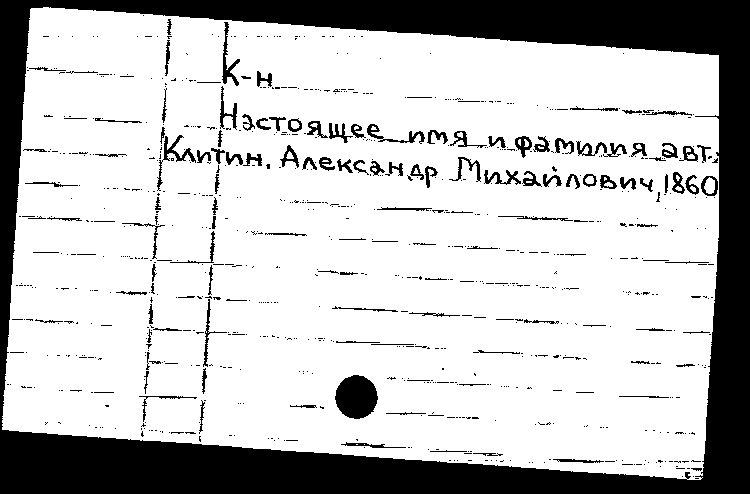 К-н
Настоящее имя и фамилия авт.:
Клитин, Александр Михайлович, 1860